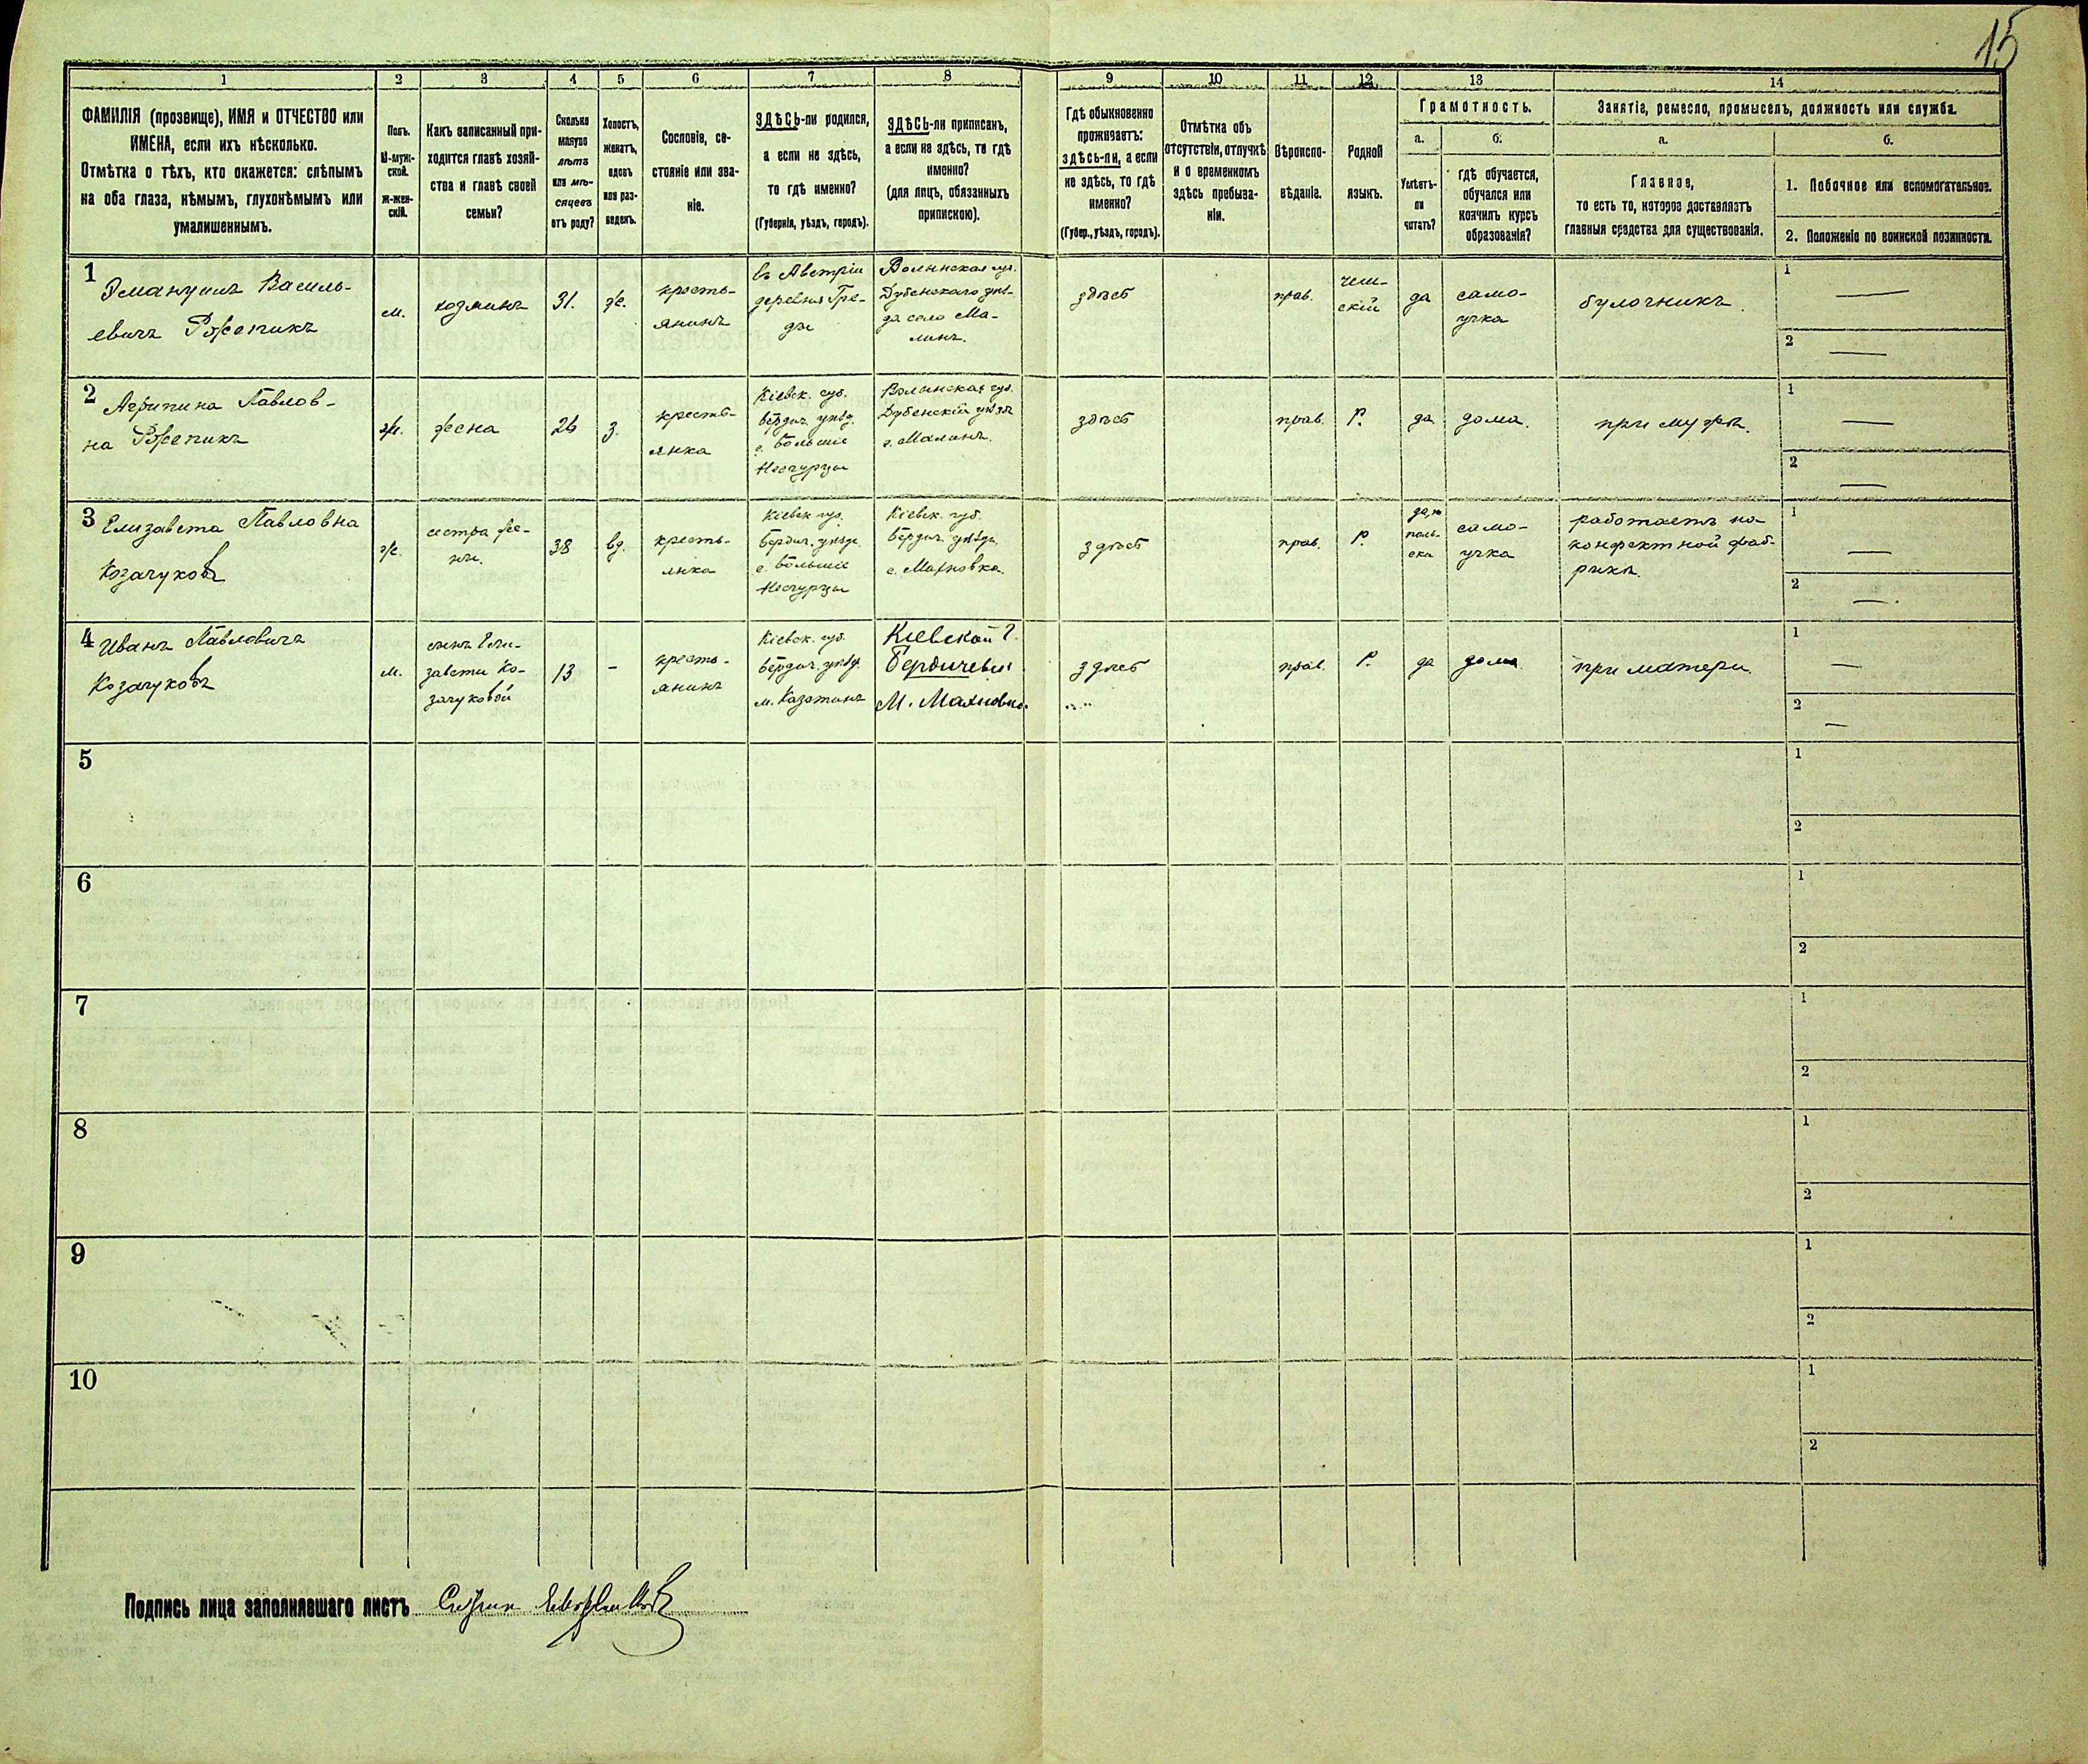 15
1 2 3 4 5 6 7 8 9 10 11 12 13 14
ФАМИЛІЯ (прозвище), ИМЯ и ОТЧЕСТВО или
ИМЕНА, если ихъ нѣсколько.
Отмѣтка о тѣхъ, кто окажется: слѣпымъ
на оба глаза, нѣмымъ, глухонѣмымъ или
умалишеннымъ.
Полъ.
М-муж-
ской.
Ж-жен-
скій.
Какъ записанный при-
ходится главѣ хозяй-
ства и главѣ своей
семьи?
Сколько
минуло
лѣтъ
или мѣ-
сяцевъ
отъ роду?
Холостъ,
женатъ,
вдовъ
или раз-
веденъ.
Сословіе, со-
стояніе или зва-
ніе.
ЗДѢСЬ-ли родился,
а если не здѣсь,
то гдѣ именно?
(Губернія, уѣздъ, городъ).
ЗДѢСЬ-ли приписанъ,
а если не здѣсь, то гдѣ
именно?
(для лицъ, обязанныхъ
припискою).
Гдѣ обыкновенно
проживаетъ:
здѣсь-ли, а если
не здѣсь, то гдѣ
именно?
(Губер., уѣздъ, городъ).
Отмѣтка объ
отсутствіи, отлучкѣ
и о временномъ
здѣсь пребыва-
ніи.
Вѣроиспо-
вѣданіе.
Родной
языкъ.
Грамотность.
а.
Умѣетъ-
ли
читать?
б.
гдѣ обучается,
обучался или
кончилъ курсъ
образованія?
Занятіе, ремесло, промыселъ, должность или служба.
а.
Главное,
то есть то, которое доставляетъ
главныя средства для существованія.
б.
1. Побочное или вспомогательное.
2. Положеніе по воинской повинности.
1
Эмануилъ Василь-
евичъ Ржепикъ
м.
хозяинъ
31.
ж.
кресть-
янинъ
въ Австріи
деревня Гре-
ды
Волынская губ.
Дубенскаго уѣз-
да село Ма-
линъ.
здѣсь
прав.
чеш-
скій
да
само-
учка
булочникъ.
1 —
2 —
2
Агрипина Павлов-
на Ржепикъ
ж.
жена
26
з.
кресть-
янка
Кіевск. губ.
Бердич. уѣзд.
с. Большіе
Нестурцы
Волынская губ.
Дубенскій уѣздъ
с. Малинъ.
здѣсь
прав.
Р.
да
дома.
при мужѣ.
1 —
2 —
3
Елизавета Павловна
Козачуковъ
ж.
сестра же-
ны.
38
вд.
кресть-
янка
Кіевск. губ.
Бердич. уѣзда
с. Большіе
Нестурцы
Кіевск. губ.
Бердич. уѣзда
с. Махновка.
здѣсь
прав.
Р.
само-
учка
работаетъ на
конфектной фаб-
рикѣ.
1 —
2 —
4
Иванъ Павловичъ
Козачуковъ
м.
сынъ Ели-
заветы Ко-
зачуковой
13
-
кресть-
янинъ
Кіевск. губ.
Бердич. уѣзд.
м. Казатинъ
Кіевской Г.
М. Махновка.
здѣсь
прав.
Р.
да
дома
при матери.
1 —
2 —
5
1
2
6
1
2
7
1
2
8
1
2
9
1
2
10
1
2
Подпись лица заполнявшаго листъ